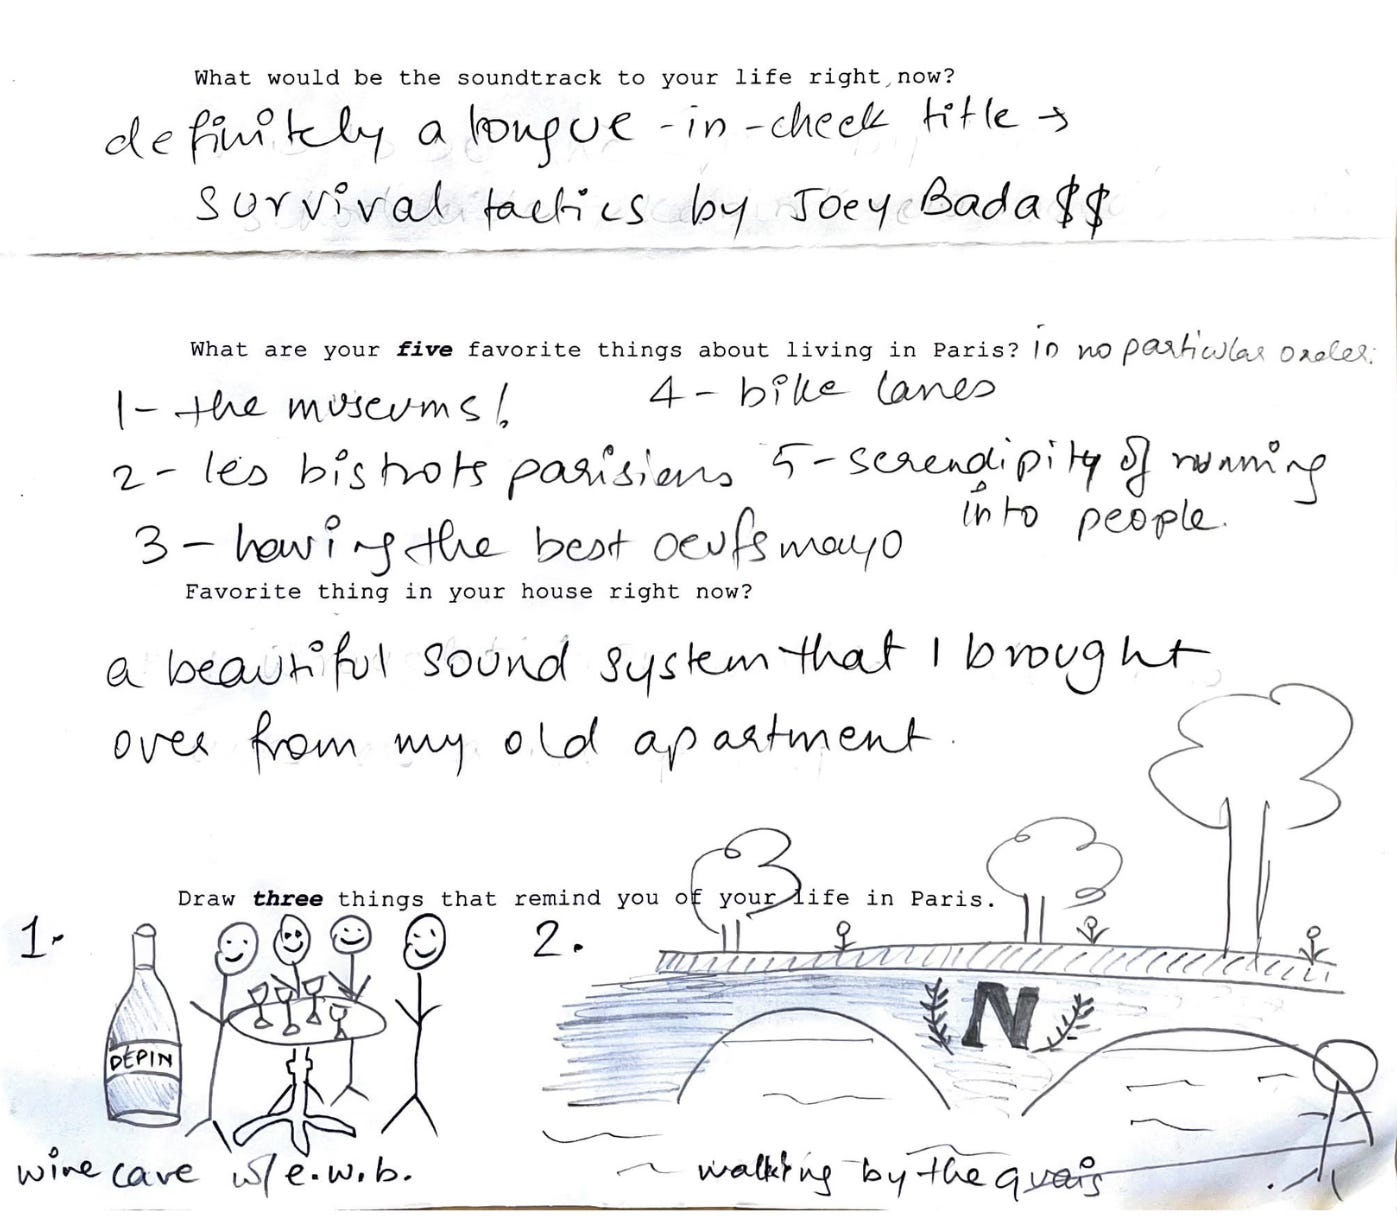 What would be the soundtrack to your life right now?
definitely a tongue-in-cheek title →
survival tactics by Joey Bada$$
What are your five favorite things about living in Paris? in no particular order:
1- the museums!
4- bike lanes
2- les bistrots parisiens
5- serendipity of running
into people.
3- having the best oeufs mayo
Favorite thing in your house right now?
a beautiful sound system that I brought
over from my old apartment.
Draw three things that remind you of your life in Paris.
1.
2.
N
DEPIN
wine cave w/ e.w.b.
walking by the quais